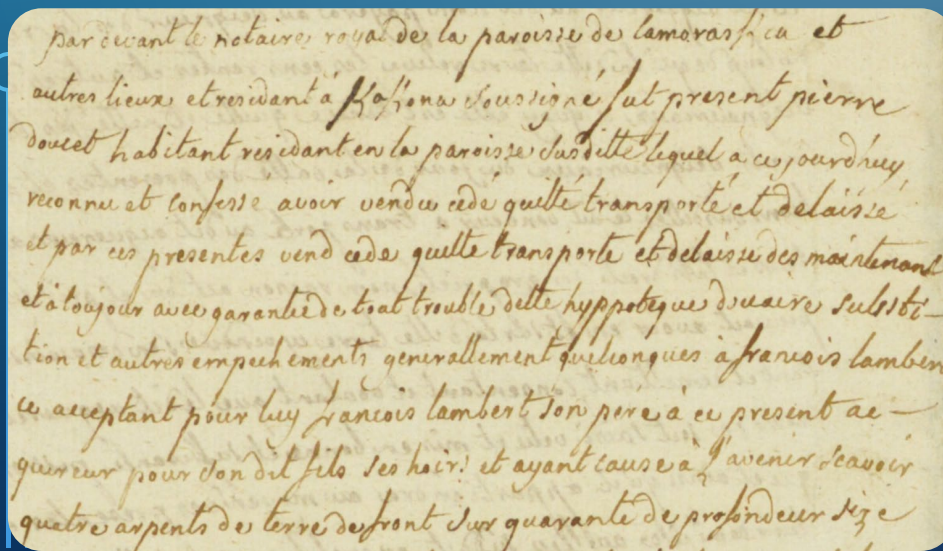 par devant le notaire royal de la paroisse de lamoraska et
autres lieux et residant á Kakona soussigné fut present pierre
doucet habitant residant en la paroisse susditte lequel a ce jourd'huy
reconnu et confesse avoir vendu cédé quitté transporté et delaissé
et par ces presentes vend cede quitte transporte et delaisse des maintenant
et à toujour avec garantie de tout trouble dette hyppoteque douaire substi-
tion et autres empechements generallement quelconques à francois lambert
ce acceptant pour luy francois lambert son pere à ce present ac-
quereur pour son dit fils ses hoirs et ayant cause à l'avenir scavoir
quatre arpents de terre de front sur quarante de profondeur size